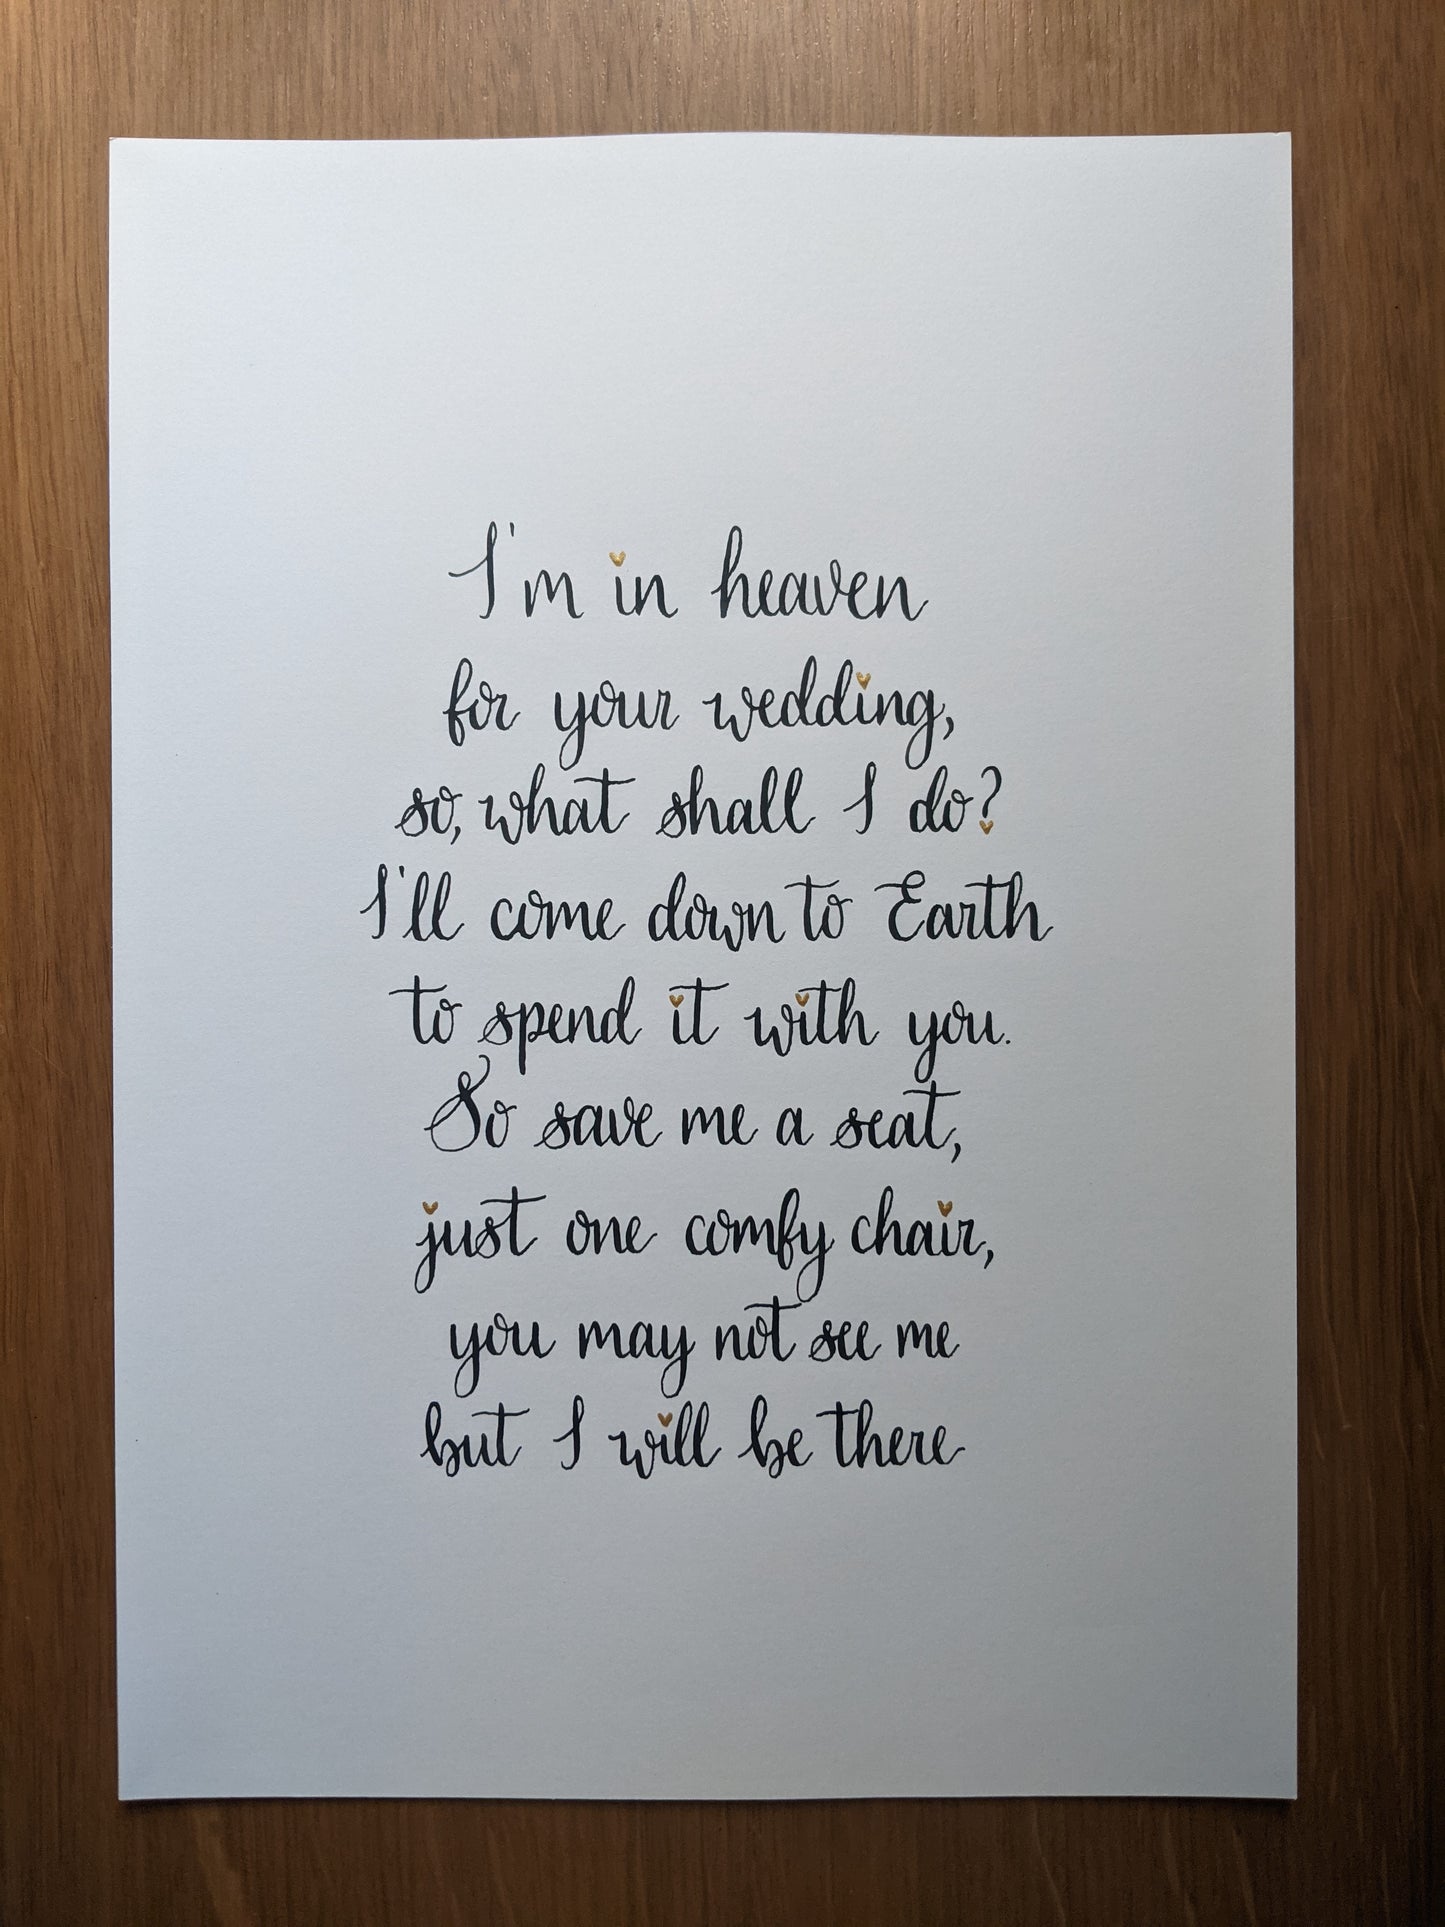 I'm in heaven
for your wedding,
so, what shall I do?
I'll come down to Earth
to spend it with you.
So save me a seat,
just one comfy chair,
you may not see me
but I will be there